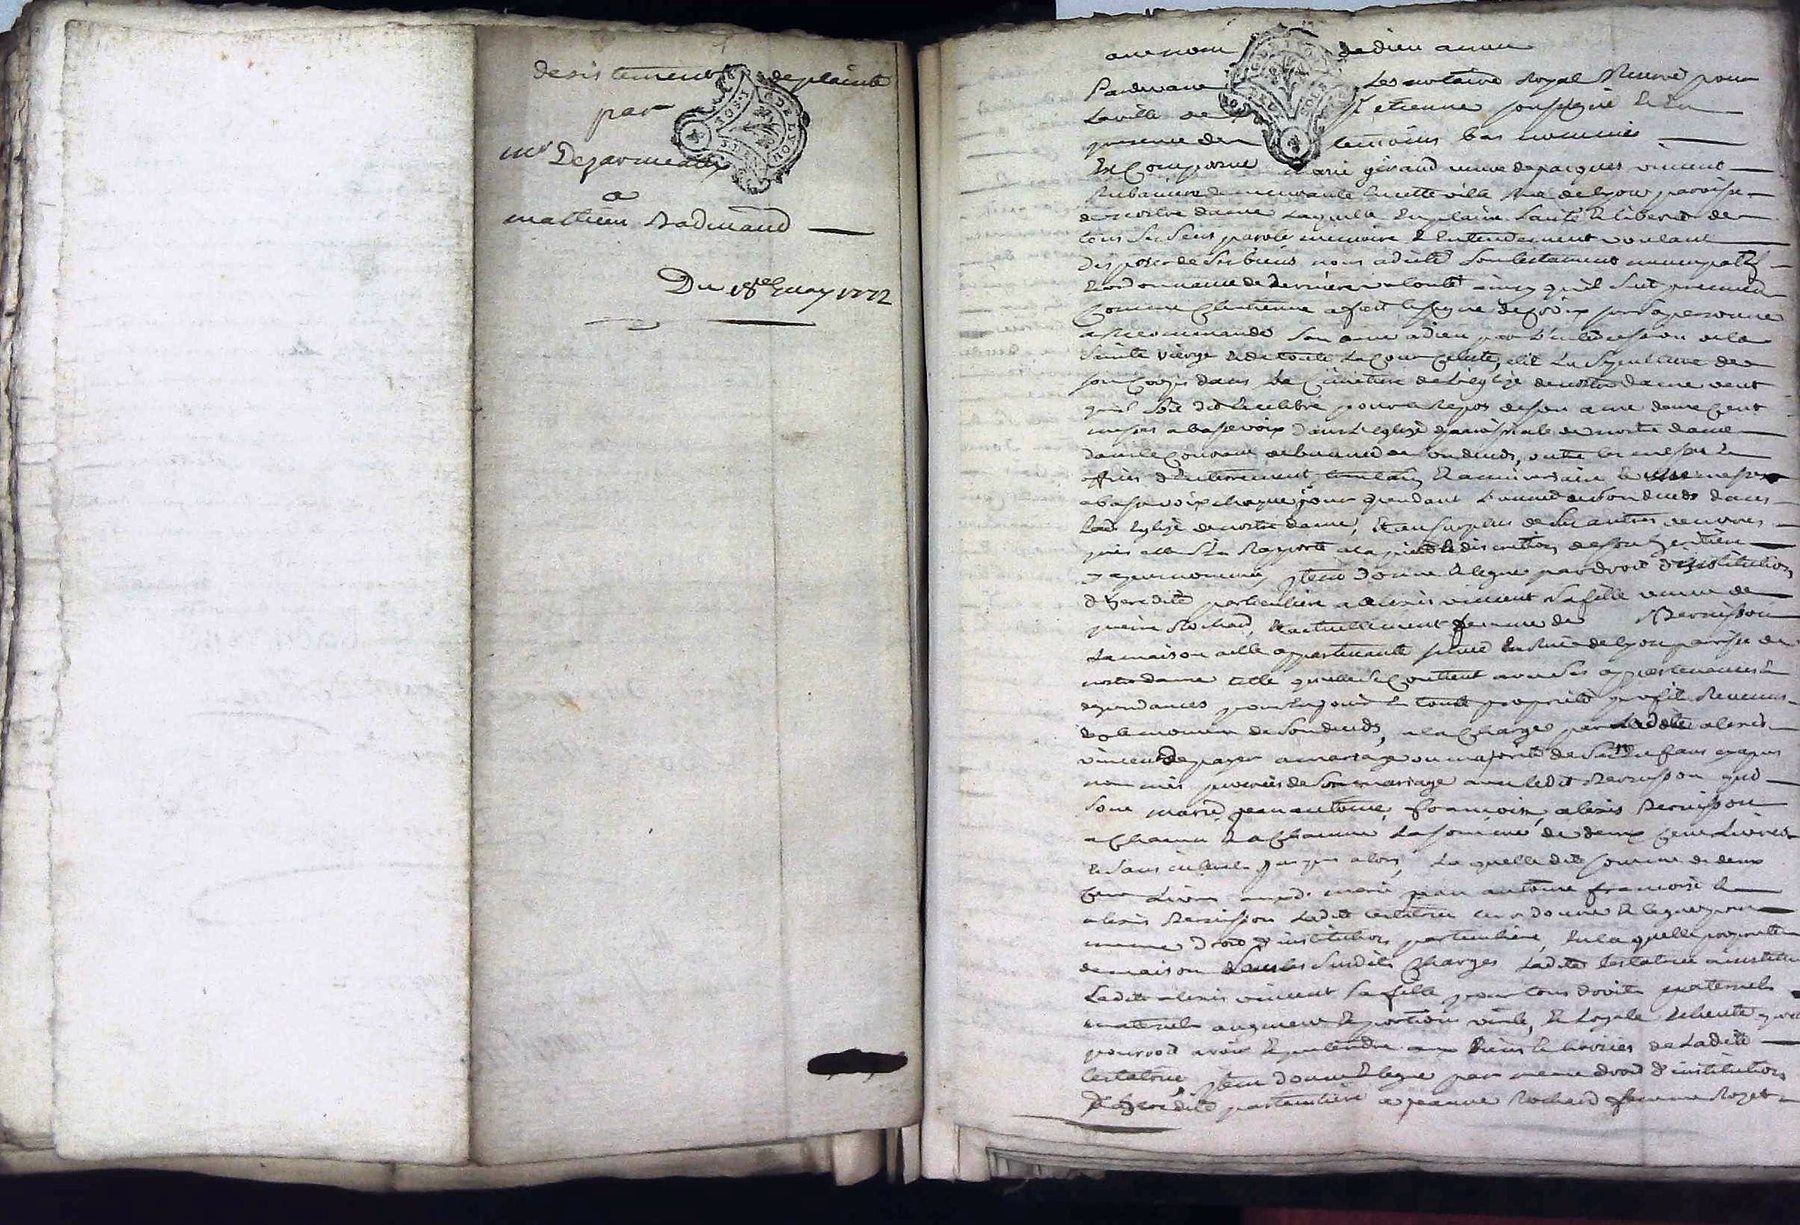 desistement de plainte
par
mr Dejarmeaux
a
mathieu Badinand
Du 18e 1772
au nom de dieu amen
Pardevant Le notaire Royal Reservé pour
La ville de St etienne soussigné & En
presence des temoins bas nommés
En Comparue marie gerand veuve de jacques vincent
Rubaniere demeurante En cette ville Rue de Lyon paroisse
de nostre dame Laquelle En pleine Santé & liberté de
tous Ses Sens parole memoire & Entendement voulant
disposer de Ses biens nous a dicté Son testament nuncupatif
& ordonnance de derniere volonté ainsy qu'il Suit premier
Comme Chretienne a fait le signe de Croix sur Sa personne
a Recommandé Son ame a dieu par L'intercession de la
Sainte vierge & de toute La Cour Celeste, elit La Sepulture de
son Corps dans Le Cimetiere de L'eglise de nostre dame veut
qu'il Soit dit & celebré pour le Repos de Son ame deux Cent
messes a basse voix dans L'eglise paroissiale de nostre dame
dans le Courant de l'année de Son deceds, outre les messes &
offices d'enterrement, & anniversaire & une messe
a basse voix chaque jour pendant L'année de Son deceds dans
Ladt Eglise de nostre dame, & au Surplus de Ses autres oeuvres
pies elle S'En Raporte a la pieté & discretion de Son heritier
cy apres nommé, Item donne & legue par droit d'institution
d'heredité particuliere a alexis vincent Sa fille veuve de
pierre Rochard, & actuellement femme de Bernisson
La maison a elle appartenante située En Rue de Lyon paroisse de
nostre dame telle qu'elle Se Contient avec Ses appartenances &
dependances pour En jouir En toute proprieté profit Revenus
des le moment de Son deceds, a la Charge par Ladite alexis
vincent de payer a mariage ou majorité de Ses Enfans cy apres
nommés procreés de Son mariage avec ledit Bernisson qui
Sont marie, jean antoine, françoise, alexis Bernisson
a Chacun & a Chacune La Somme de deux Cent Livres
& Sans interet jusques alors, La quelle dite Somme de deux
Cent Livres auxd. marie jean antoine francoise &
alexis Bernisson Ladite testatrice leur donne & legue par
meme droit d'institution particuliere, En la quelle proprieté
de maison Sous les Susdites Charges Ladite testatrice a institué
Ladite alexis vincent Sa fille pour tous droits paternels
maternels augment & portion virile, & Loyale Echeute qu'elle
pourroit avoir & pretendre aux biens & hoiries de Ladite
testatrice, Item donne & legue par meme droit d'institution
d'heredité particuliere a jeanne Rochard femme Royet